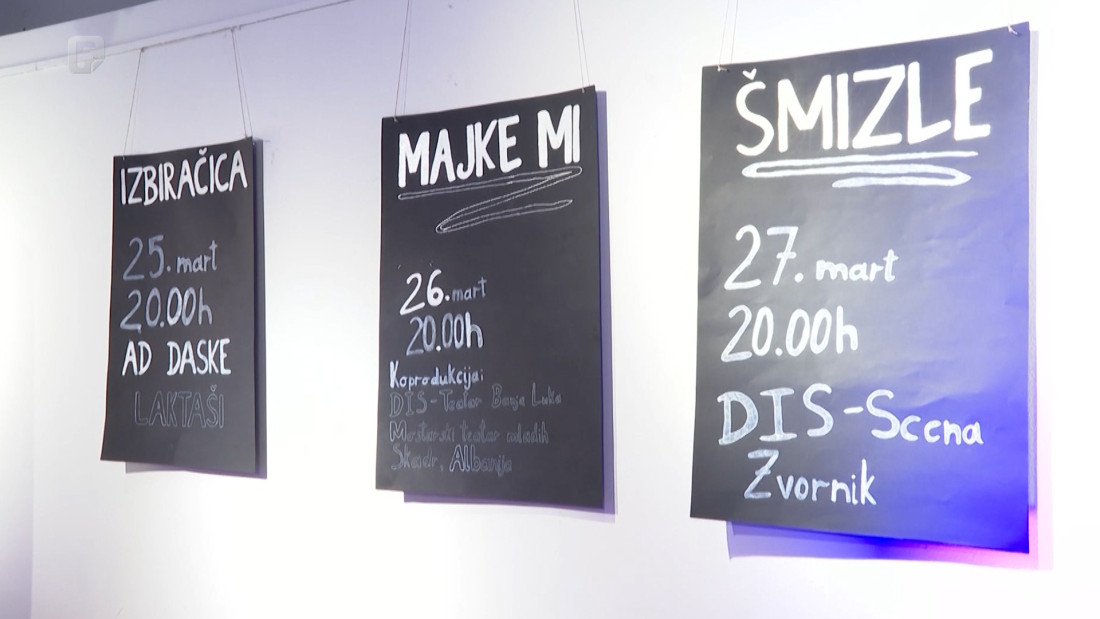 IZBIRAČICA
25. mart
20.00h
AD DASKE
LAKTAŠI
MAJKE MI
26. mart
20.00h
Koprodukcija:
DIS-Teatar Banja Luka
Mostarski teatar mladih
Skadr, Albanija
ŠMIZLE
27. mart
20.00h
DIS-Scena
Zvornik